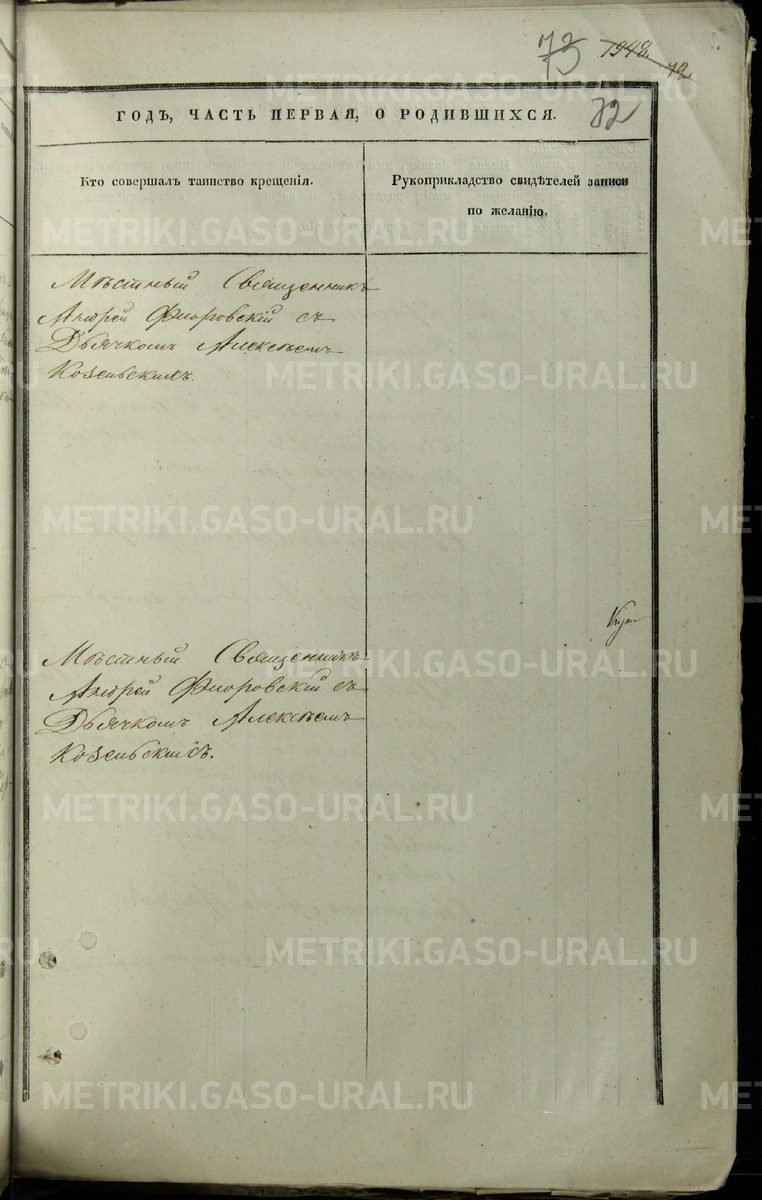 73 1948. 72
72
ГОДЪ, ЧАСТЬ ПЕРВАЯ, О РОДИВШИХСЯ.
Кто совершалъ таинство крещенія.
Рукоприкладство свидѣтелей записи
по желанію.
Мѣстный Священникъ
Андрей Флоровскій съ
Дьячкомъ Алексѣемъ
Козельскимъ.
Мѣстный Священникъ
Андрей Флоровскій съ
Дьячкомъ Алексѣемъ
Козельскимъ.
METRIKI.GASO-URAL.RU